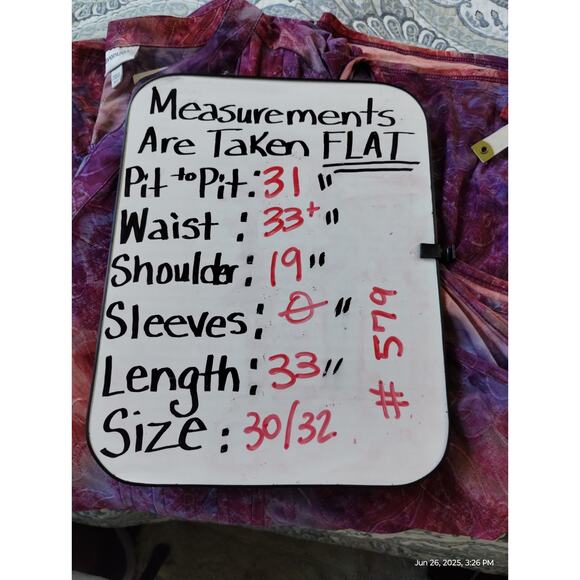 Measurements
Are Taken FLAT
Pit to Pit: 31"
Waist: 33+"
Shoulder: 19"
Sleeves: 0"
Length: 33"
Size: 30/32
# 579
Jun 26, 2025, 3:26 PM